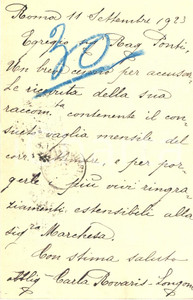 Roma 11 Settembre 1923
Egregio Sig Rag Ponti.
Un breve cenno per accusar
Le ricevuta della sua
raccom.ta contenente il con
sueto vaglia mensile del
corr. Settembre, e per por
gerle i più vivi ringra
ziamenti estensibili alla
sig.ra Marchesa.
Con stima saluto
obblig Carla Rovaris-Longoni
30